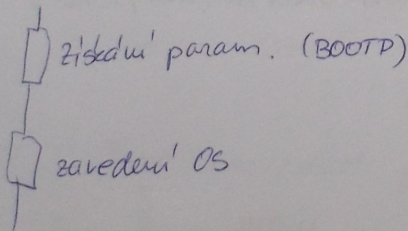 získání param. (BOOTP)
zavedení OS